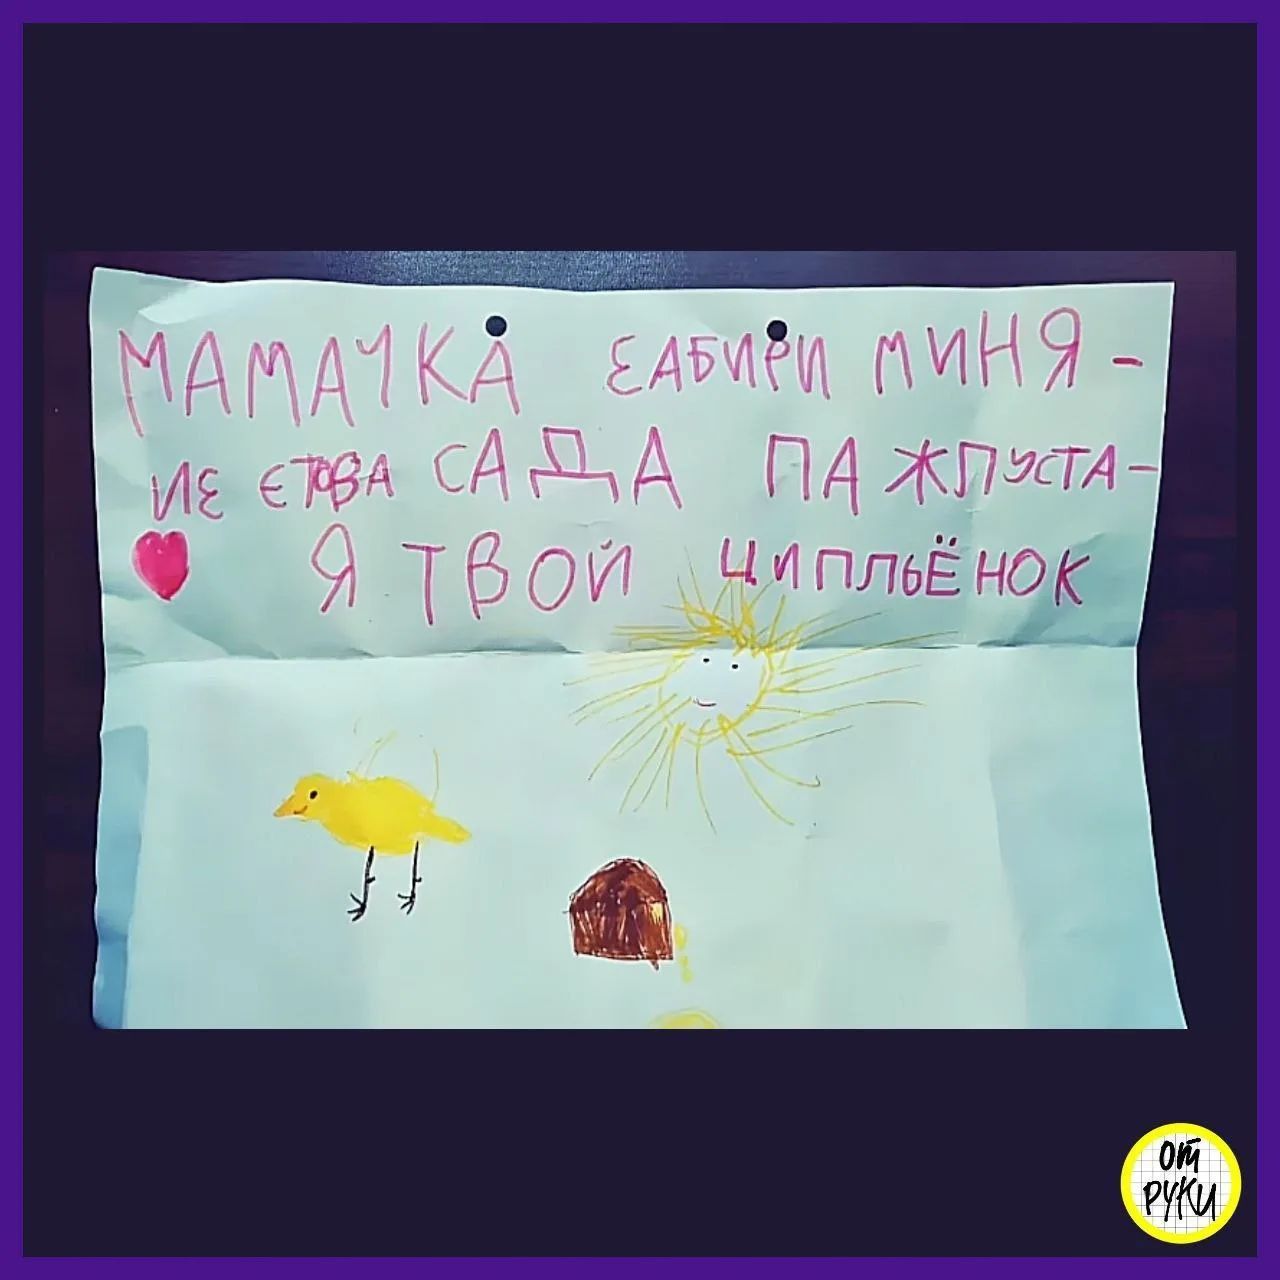 МАМАЧКА ЗАБИРИ МИНЯ -
ИЗ ЄТОВА САДА ПАЖПУСТА -
Я ТВОЙ ЦИПЛЬЁНОК
ОТ
РУКИ